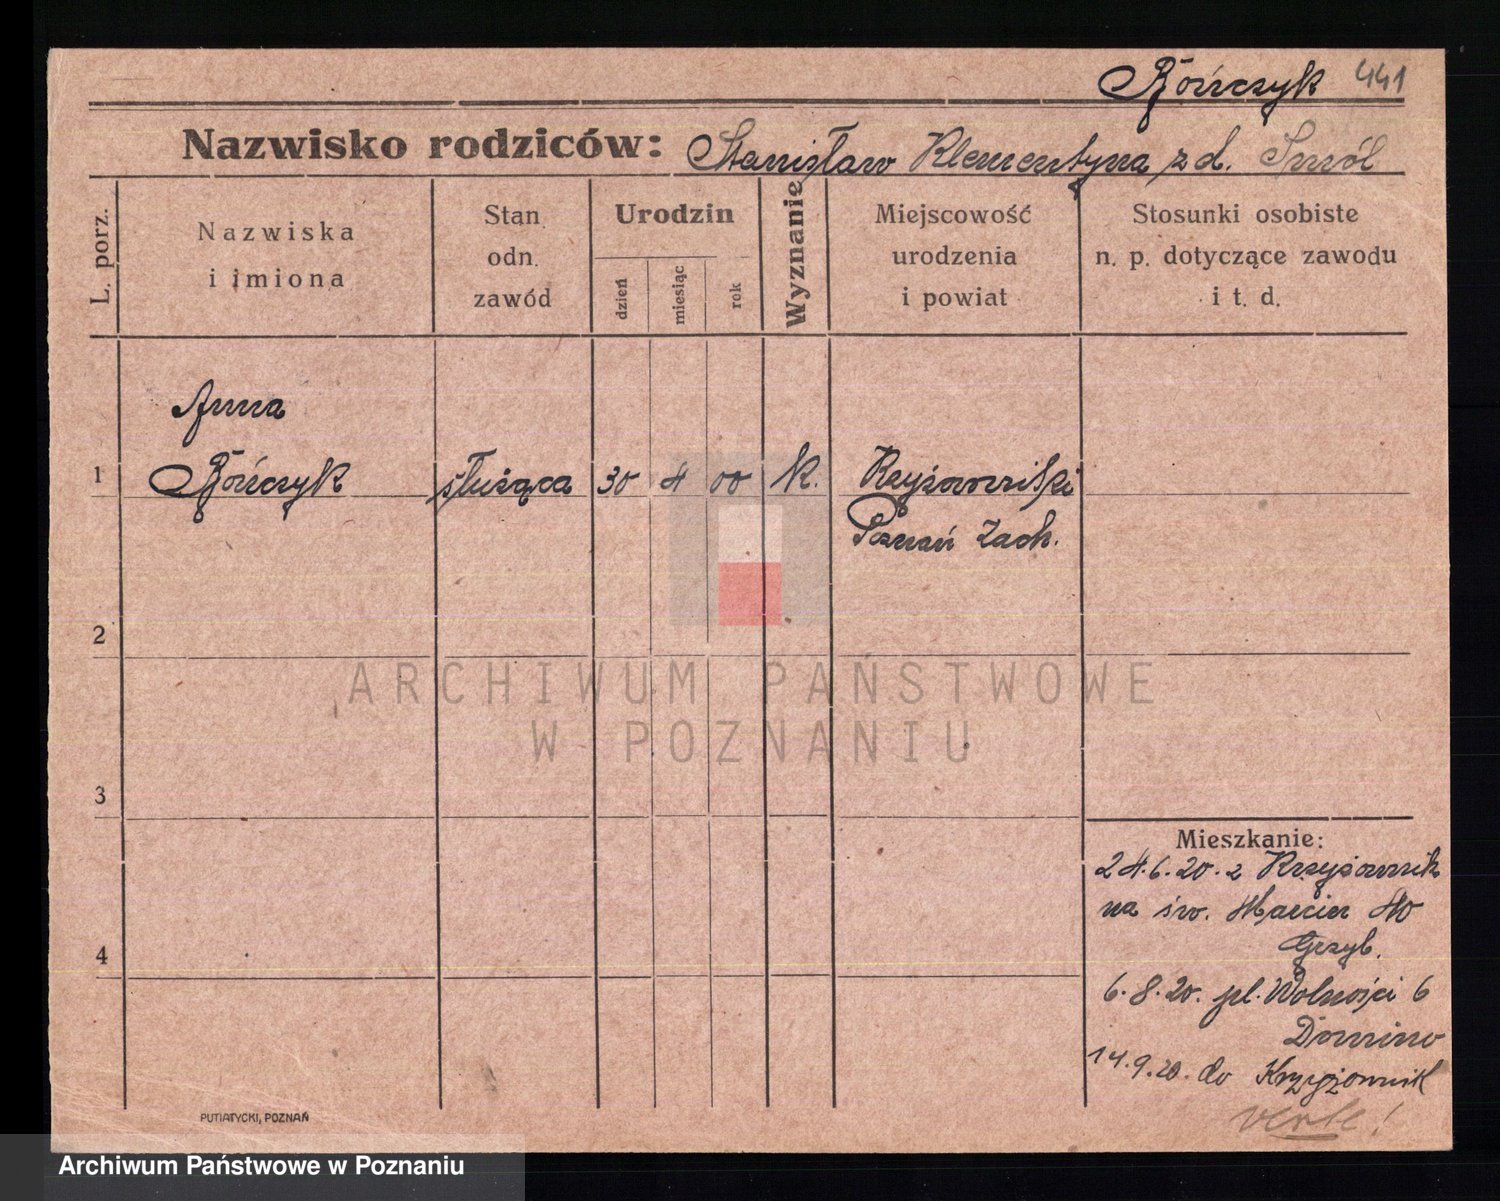 Rończyk 441
Nazwisko rodziców: Stanisław Klementyna z d. Smól
L. porz.
Nazwiska
i imiona
Stan
odn.
zawód
Urodzin
dzień
miesiąc
rok
Wyznanie
Miejscowość
urodzenia
i powiat
Stosunki osobiste
n. p. dotyczące zawodu
i t. d.
Anna
1 Rończyk służąca 30 4 00 k.
Poznań Zach.
2
ARCHIWUM PAŃSTWOWE
W POZNANIU
3
Mieszkanie:
24.6.20. z Krzyżownik
na św. Marcin 40
Grzyb.
4
6.8.20. pl. Wolności 6
Domino
14.9.20. do Krzyżownik
verte!
PUTIATYCKI, POZNAŃ
Archiwum Państwowe w Poznaniu